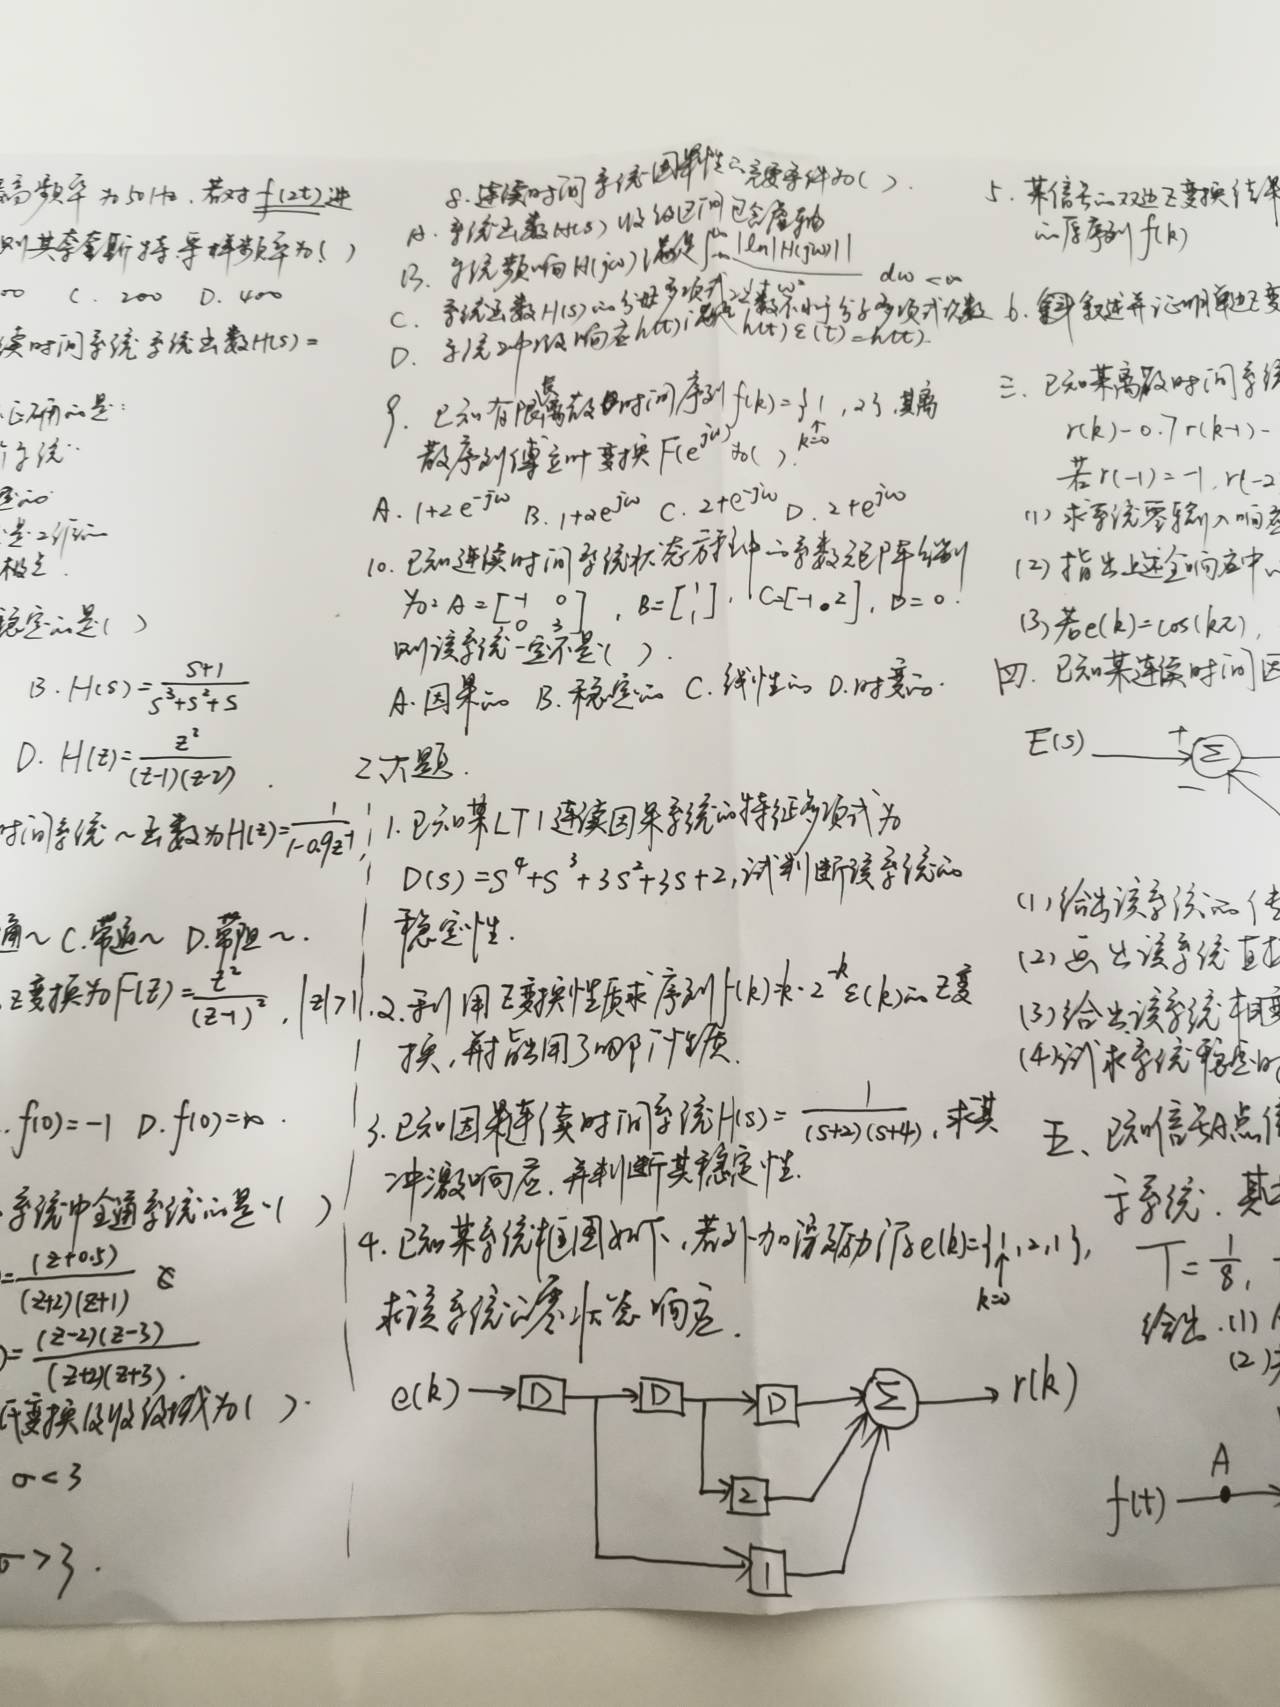 高频率为50Hz,若对f(2t)进
则其奈奎斯特采样频率为( )
00 C. 200 D. 400
续时间系统系统函数H(s)=
正确的是:
稳定的是( )
B. H(s)=\frac{s+1}{s^3+s^2+s}
D. H(z)=\frac{z^2}{(z-1)(z-2)}.
时间系统~函数为H(z)=\frac{1}{1-0.9z^{-1}},
通~ C.带通~ D.带阻~.
Z变换为F(z)=\frac{z^2}{(z-1)^2}, |z|>1.
f(0)=-1 D. f(0)=∞.
系统中全通系统的是( )
=\frac{(z+0.5)}{(z+2)(z+1)}
)=\frac{(z-2)(z-3)}{(z+2)(z+3)}.
氏变换及收敛域为( ).
σ<3
σ>3.
8.连续时间系统因果性的充要条件为( ).
A. 系统函数H(s)收敛区间包含虚轴
B. 系统频响H(jω)满足∫|ln|H(jω)|| dω<∞
C. 系统函数H(s)的分母多项式次数不小于分子多项式次数
D. 系统冲激响应h(t)满足h(t)ε(t)=h(t).
9. 已知有限长离散时间序列f(k)={1,2},其离
↑
k=0
散序列傅立叶变换F(e^{jω})为( ).
A. 1+2e^{-jω} B. 1+2e^{jω} C. 2+e^{-jω} D. 2+e^{jω}
10. 已知连续时间系统状态方程中的系数矩阵分别
为: A=[-1 0 ; 0 3], B=[1 ; 1], C=[-1,2], D=0.
则该系统一定不是( ).
A.因果的 B.稳定的 C.线性的 D.时变的.
二、大题.
1.已知某LTI连续因果系统的特征多项式为
D(s)=s^4+s^3+3s^2+3s+2,试判断该系统的
稳定性.
2.利用Z变换性质求序列f(k)=k·2^{-k}ε(k)的Z变
换,并指出用了哪个性质.
3.已知因果连续时间系统H(s)=\frac{1}{(s+2)(s+4)},求其
冲激响应,并判断其稳定性.
4.已知某系统框图如下,若外加激励序e(k)={1,2,1},
↑
k=0
求该系统的零状态响应.
e(k) D D D Σ r(k)
2
1
5. 某信号的双边Z变换结果
的原序列f(k)
6. 叙述并证明单边Z变
三. 已知某离散时间系统
r(k)-0.7r(k-1)-
若r(-1)=-1, r(-2
(1)求系统零输入响应
(2)指出上述全响应中
(3)若e(k)=cos(kπ),
四. 已知某连续时间因
E(s) + Σ
-
(1)给出该系统的传
(2)画出该系统直接
(3)给出该系统相变
(4)试求系统稳定时
五、已知信号A点信
于系统.其中
T=\frac{1}{8},
给出.(1)
(2)
A
f(t)